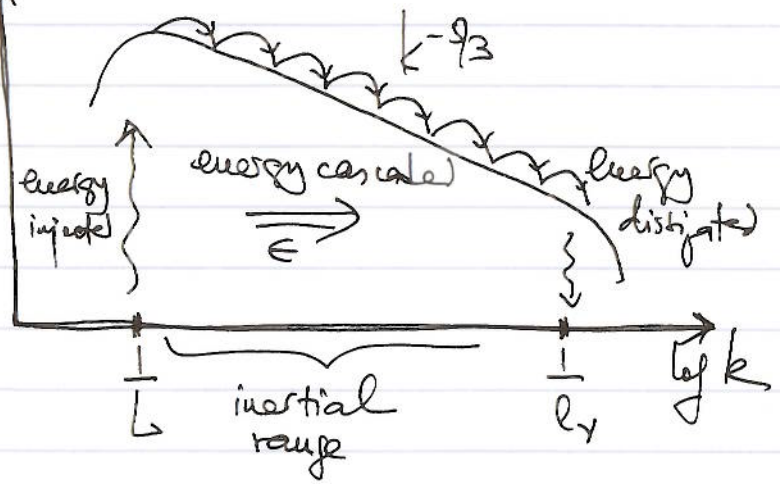 k^{-5/3}
energy
injected
energy cascaded
ϵ
energy
dissipated
1/L
inertial
range
1/l_ν
log k